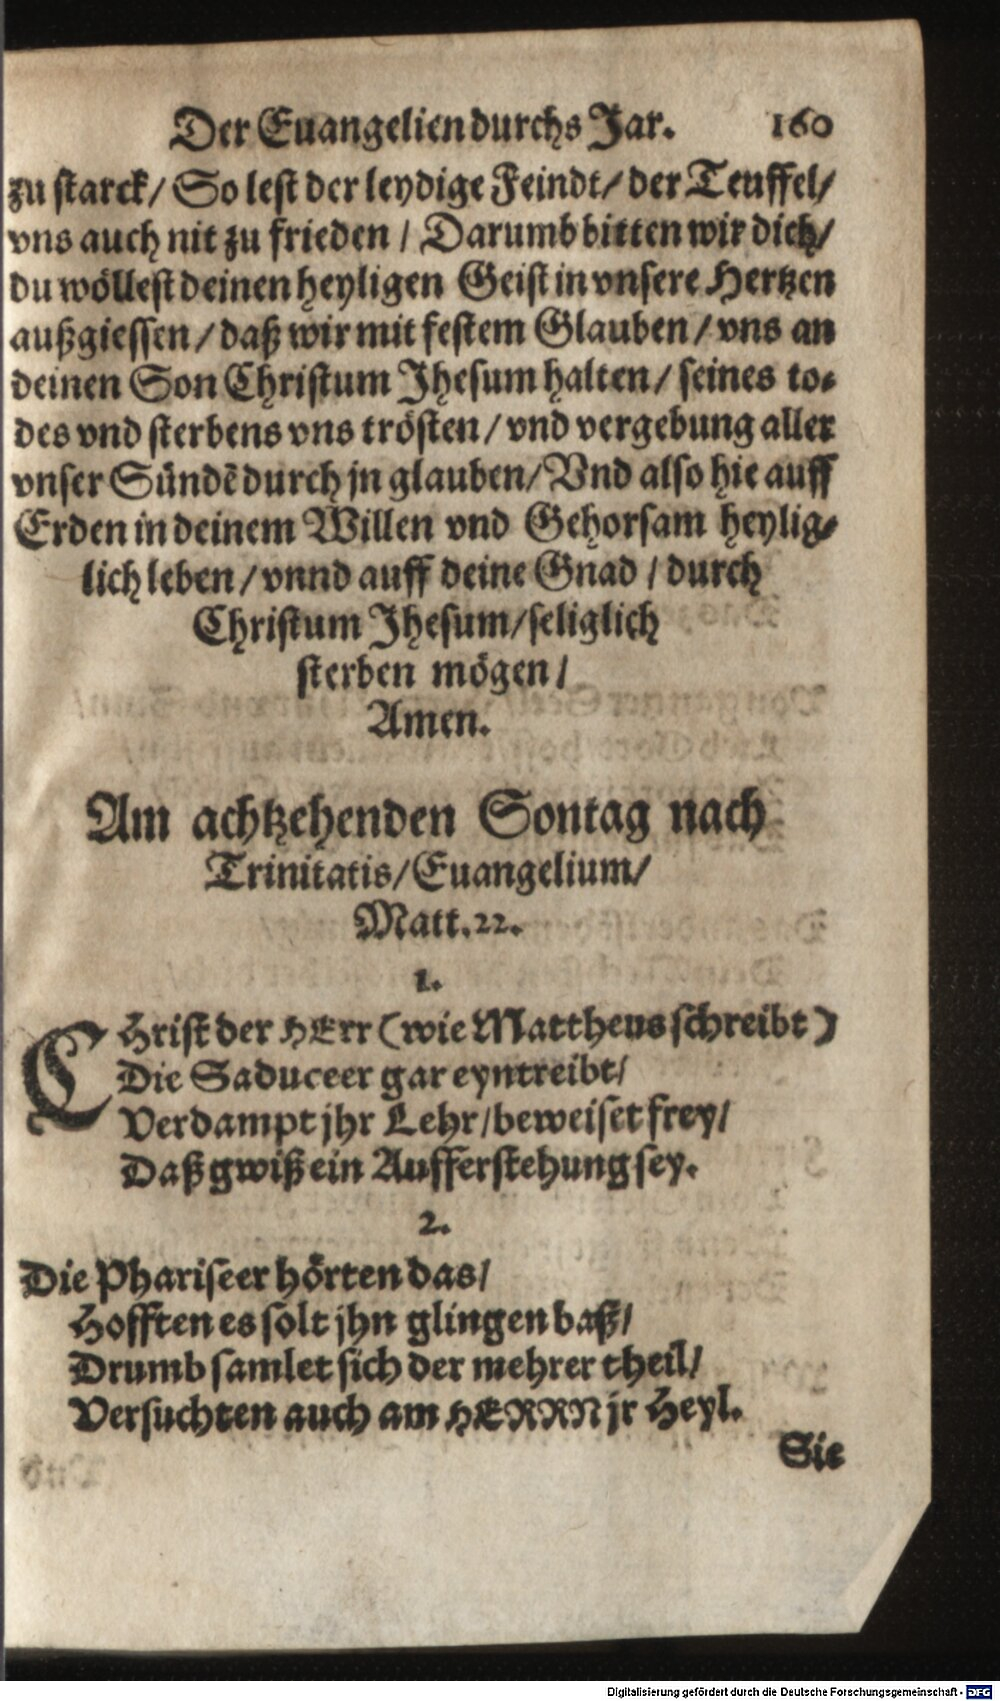 Der Euangelien durchs Jar. 160
zu starck/ So lest der leydige Feindt/ der Teuffel/
vns auch nit zu frieden / Darumb bitten wir dich/
du wöllest deinen heyligen Geist in vnsere Hertzen
außgiessen/ daß wir mit festem Glauben/ vns an
deinen Son Christum Jhesum halten/ seines to-
des vnd sterbens vns trösten/ vnd vergebung aller
vnser Sündē durch jn glauben/ Vnd also hie auff
Erden in deinem Willen vnd Gehorsam heylig-
lich leben/ vnnd auff deine Gnad / durch
Christum Jhesum/ seliglich
sterben mögen/
Amen.
Am achtzehenden Sontag nach
Trinitatis/ Euangelium/
Matt. 22.
1.
CHrist der HErr (wie Mattheus schreibt)
Die Saduceer gar eyntreibt/
Verdampt jhr Lehr/ beweiset frey/
Daß gwiß ein Aufferstehung sey.
2.
Die Phariseer hörten das/
Hofften es solt jhn glingen baß/
Drumb samlet sich der mehrer theil/
Versuchten auch am HERRN jr Heyl.
Sie
Digitalisierung gefördert durch die Deutsche Forschungsgemeinschaft - DFG